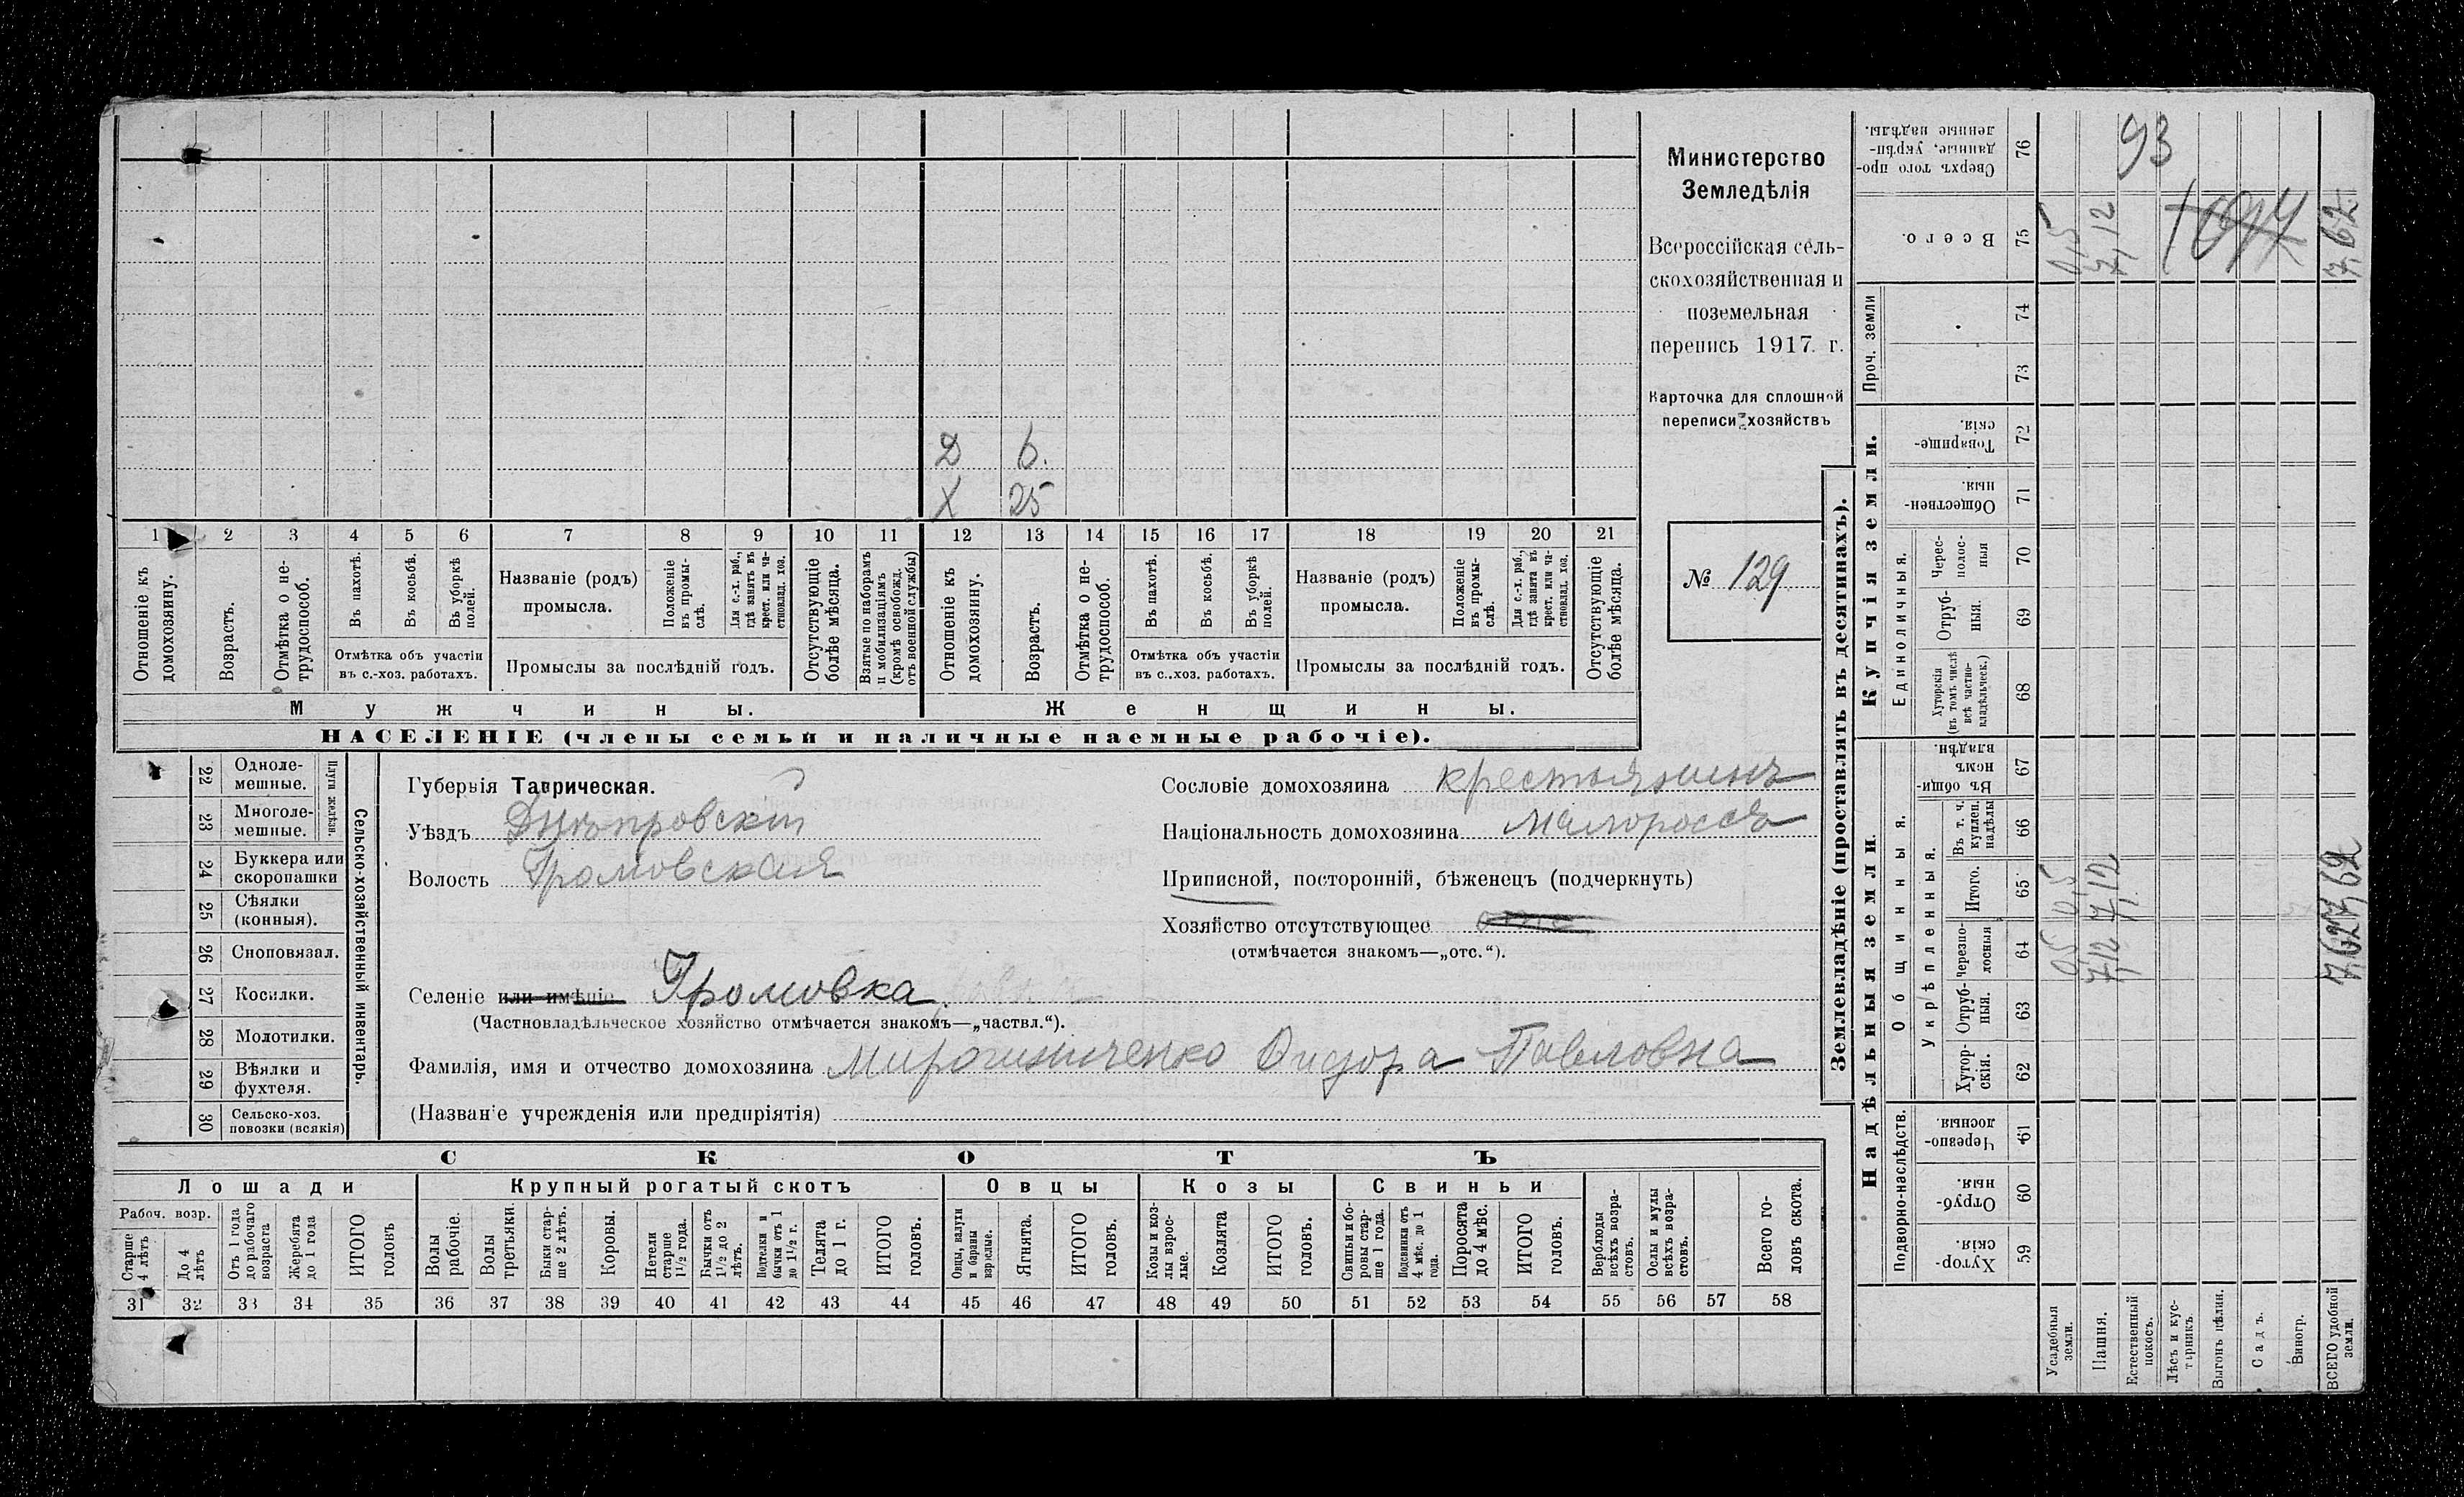 Министерство
Земледѣлія
Всероссійская сель-
скохозяйственная и
поземельная
перепись 1917 г.
Карточка для сплошной
переписи хозяйствъ
№ 129
Д 6.
Х 25
1 2 3 4 5 6 7 8 9 10 11 12 13 14 15 16 17 18 19 20 21
Отношеніе къ домохозяину.
Возрастъ.
Отмѣтка о не-трудоспособ.
Въ пахотѣ.
Въ косьбѣ.
Въ уборкѣ полей.
Отмѣтка объ участіи
въ с.-хоз. работахъ.
Названіе (родъ)
промысла.
Положеніе въ промы-слѣ.
Для с.-х. раб., гдѣ занятъ въ крест. или ча-стновлад. хоз.
Промыслы за послѣдній годъ.
Отсутствующіе болѣе мѣсяца.
Взятые по наборамъ и мобилизаціямъ (кромѣ освобожд. отъ военной службы)
Отношеніе къ домохозяину.
Возрастъ.
Отмѣтка о не-трудоспособ.
Въ пахотѣ.
Въ косьбѣ.
Въ уборкѣ полей.
Отмѣтка объ участіи
въ с..хоз. работахъ.
Названіе (родъ)
промысла.
Положеніе въ промы-слѣ.
Для с.-х. раб., гдѣ занята въ крест. или ча-стновлад. хоз.
Промыслы за послѣдній годъ.
Отсутствующіе болѣе мѣсяца.
Мужчины.
Женщины.
НАСЕЛЕНІЕ (члены семьи и наличные наемные рабочіе).
22 Одноле-мешные.
23 Многоле-мешные.
Плуги желѣзн.
24 Буккера или скоропашки
25 Сѣялки (конныя).
26 Сноповязал.
27 Косилки.
28 Молотилки.
29 Вѣялки и фухтеля.
30 Сельско-хоз. повозки (всякія)
Сельско-хозяйственный инвентарь.
Губернія Таврическая.
Уѣздъ Днѣпровскій
Волость Громовская
Селеніе или имѣніе Громовка
(Частновладѣльческое хозяйство отмѣчается знакомъ—„частвл.“).
Фамилія, имя и отчество домохозяина Мирошниченко Сидора Павловна
(Названіе учрежденія или предпріятія)
Сословіе домохозяина крестьянинъ
Національность домохозяина Малороссъ
Приписной, посторонній, бѣженецъ (подчеркнуть)
Хозяйство отсутствующее
(отмѣчается знакомъ—„отс.“).
СКОТЪ
Лошади
Крупный рогатый скотъ
Овцы
Козы
Свиньи
Рабоч. возр.
Старше 4 лѣтъ
До 4 лѣтъ
Отъ 1 года до рабочаго возраста
Жеребята до 1 года
ИТОГО головъ
Волы рабочіе.
Волы третьяки.
Быки стар-ше 2 лѣтъ.
Коровы.
Нетели старше 1½ года.
Бычки отъ 1½ до 2 лѣтъ.
Подтелки и бычки отъ 1 до 1½ г.
Телята до 1 г.
ИТОГО головъ.
Овцы, валухи и бараны взрослые.
Ягнята.
ИТОГО головъ.
Козы и коз-лы взрос-лые.
Козлята
ИТОГО головъ.
Свиньи и бо-ровы стар-ше 1 года.
Подсвинки отъ 4 мѣс. до 1 года.
Поросята до 4 мѣс.
ИТОГО головъ.
Верблюды всѣхъ возра-стовъ.
Ослы и мулы всѣхъ возра-стовъ.
Всего го-ловъ скота.
31 32 33 34 35 36 37 38 39 40 41 42 43 44 45 46 47 48 49 50 51 52 53 54 55 56 57 58
Землевладѣніе (проставлять въ десятинахъ).
Надѣльныя земли.
Купчія земли.
Проч. земли
Подворно-наслѣдств.
Общинныя.
Укрѣпленныя.
Единоличныя.
Сверхъ того про-данные, укрѣп-ленные надѣлы. 76 93
Всего. 75 0,5 7,12 7,62
74
73
Товарище-скія. 72
Обществен-ныя. 71
Черес-полос-ныя 70
Отруб-ныя. 69
Хуторскія (въ томъ числѣ всѣ частно-владѣльческ.) 68
Въ общи-номъ владѣн. 67
Въ т. ч. куплен. надѣлы 66
Итого. 65 0,5 7,12 7,62
Черезпо-лосныя 64 0,5 7,12 7,62
Отруб-ныя. 63
Хутор-скія. 62
Черезпо-лосныя. 61
Отруб-ныя. 60
Хутор-скія. 59
Усадебныя земли.
Пашня.
Естественный покосъ.
Лѣсъ и кус-тарникъ.
Выгонъ цѣлин.
Садъ.
Виногр.
ВСЕГО удобной земли.